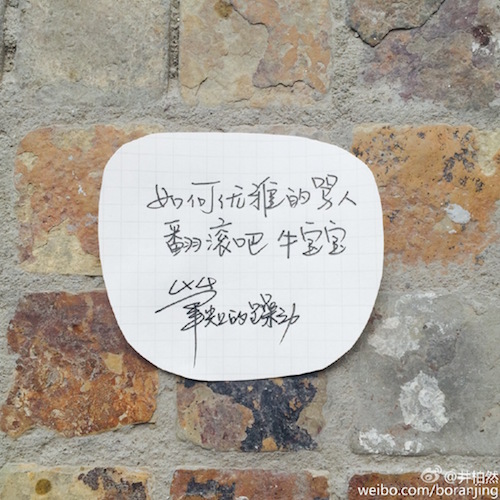 如何优雅的骂人
翻滚吧 牛宝宝
筆尖上的躁动
@井柏然
weibo.com/boranjing